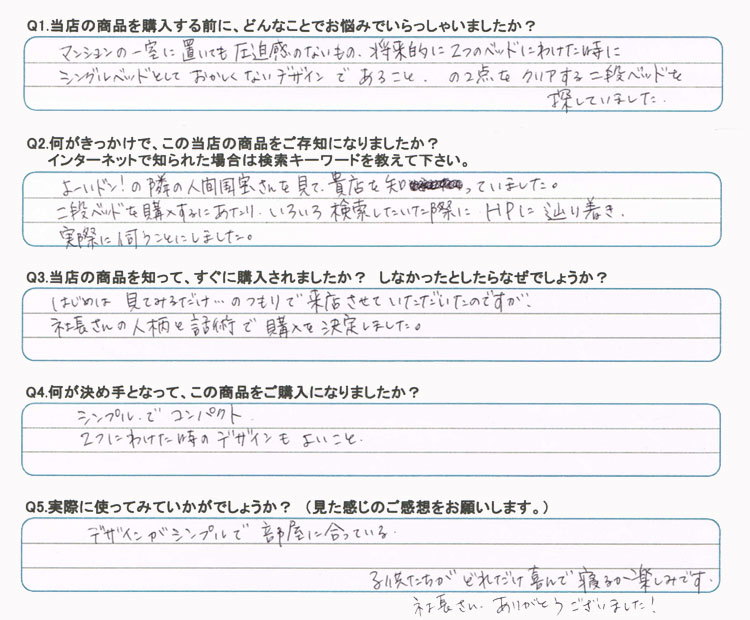 Q1.当店の商品を購入する前に、どんなことでお悩みでいらっしゃいましたか？
マンションの一室に置いても圧迫感のないもの、将来的に2つのベッドにわけた時に
シングルベッドとしておかしくないデザインであること、の2点をクリアする二段ベッドを
探していました。
Q2.何がきっかけで、この当店の商品をご存知になりましたか？
インターネットで知られた場合は検索キーワードを教えて下さい。
よーいドン！の隣の人間国宝さんを見て、貴店を知っていました。
二段ベッドを購入するにあたり、いろいろ検索したいた際に HPに辿り着き、
実際に伺うことにしました。
Q3.当店の商品を知って、すぐに購入されましたか？ しなかったとしたらなぜでしょうか？
はじめは 見てみるだけ…のつもりで来店させていただいたのですが、
社長さんの人柄と話術で購入を決定しました。
Q4.何が決め手となって、この商品をご購入になりましたか？
シンプルでコンパクト、
2つにわけた時のデザインもよいこと。
Q5.実際に使ってみていかがでしょうか？ （見た感じのご感想をお願いします。）
デザインがシンプルで 部屋に合っている。
子供たちが どれだけ喜んで寝るか楽しみです。
社長さん、ありがとうございました！